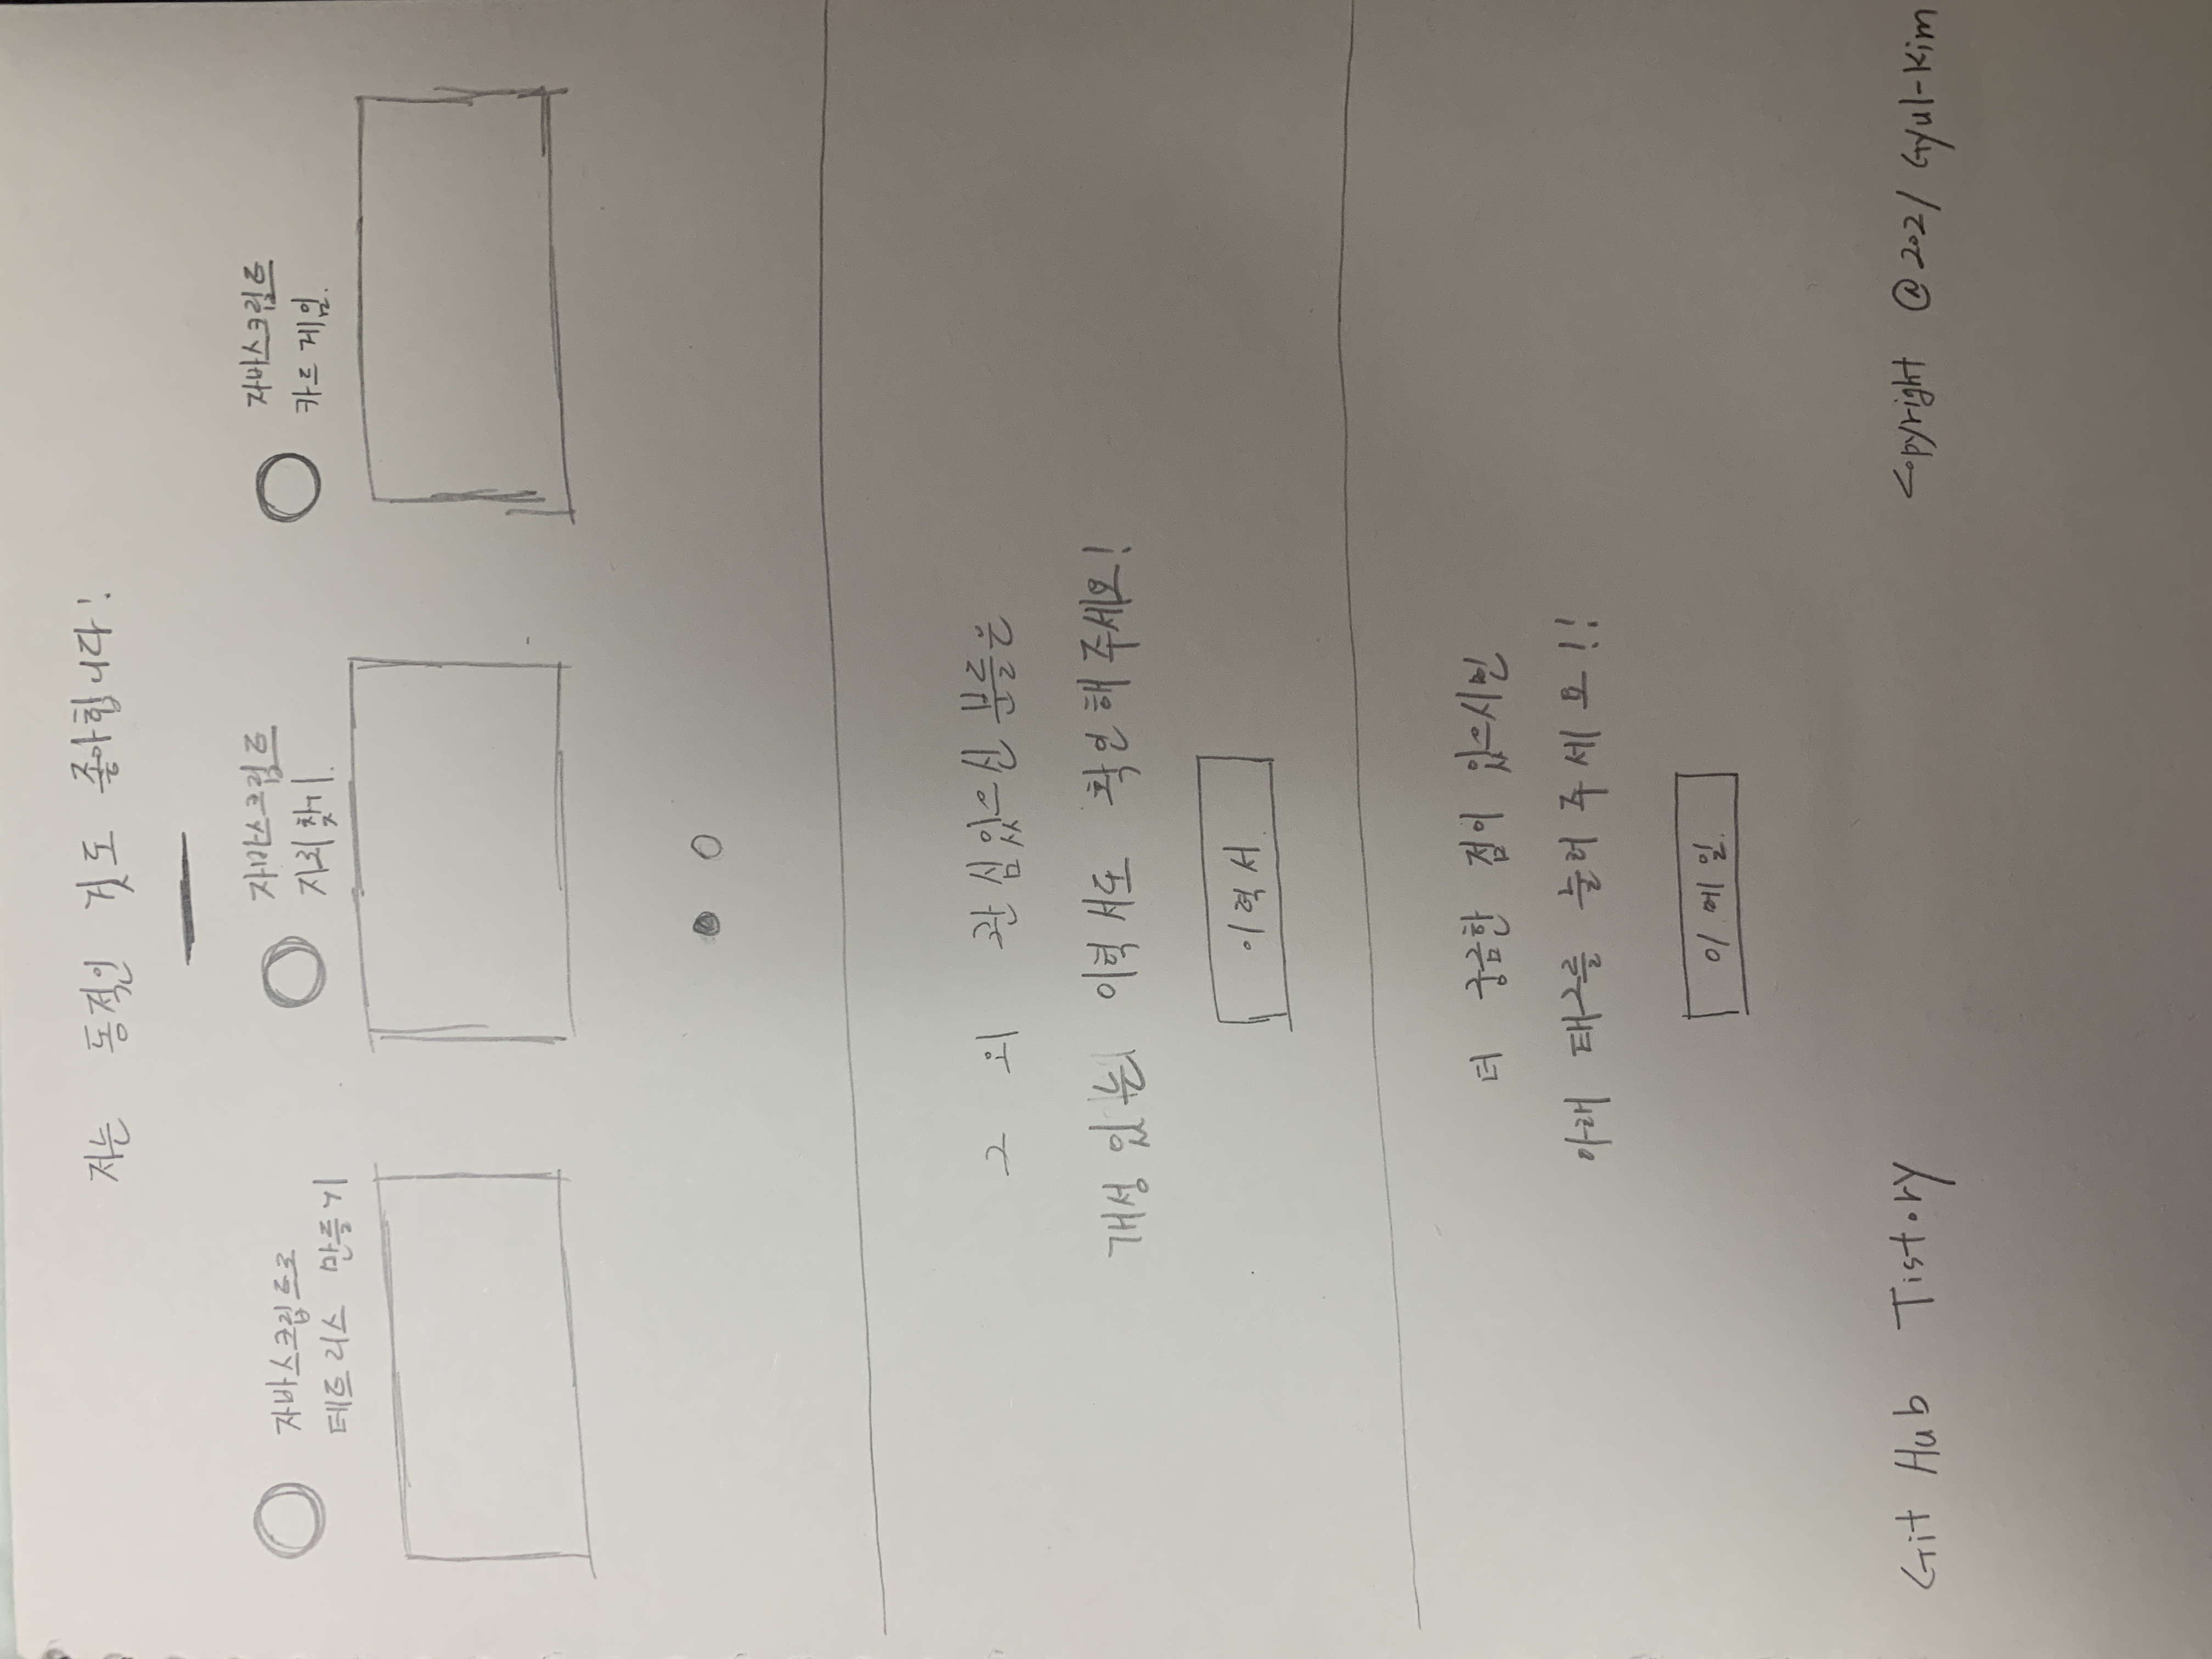 저는 동적인 것도 좋아합니다!
자바스크립트로
테트리스 만들기
자바스크립트
지뢰 찾기.
자바스크립트
카드 게임.
그 외 관심있으신 분들은
개성 있는 이력서도 확인해 주세요!
이력서.
더 궁금한 점이 있으시면
아래 태그를 눌러 주세요!!
이메일.
Git Hub Tistory
Copyright @2021 Gyul-Kim